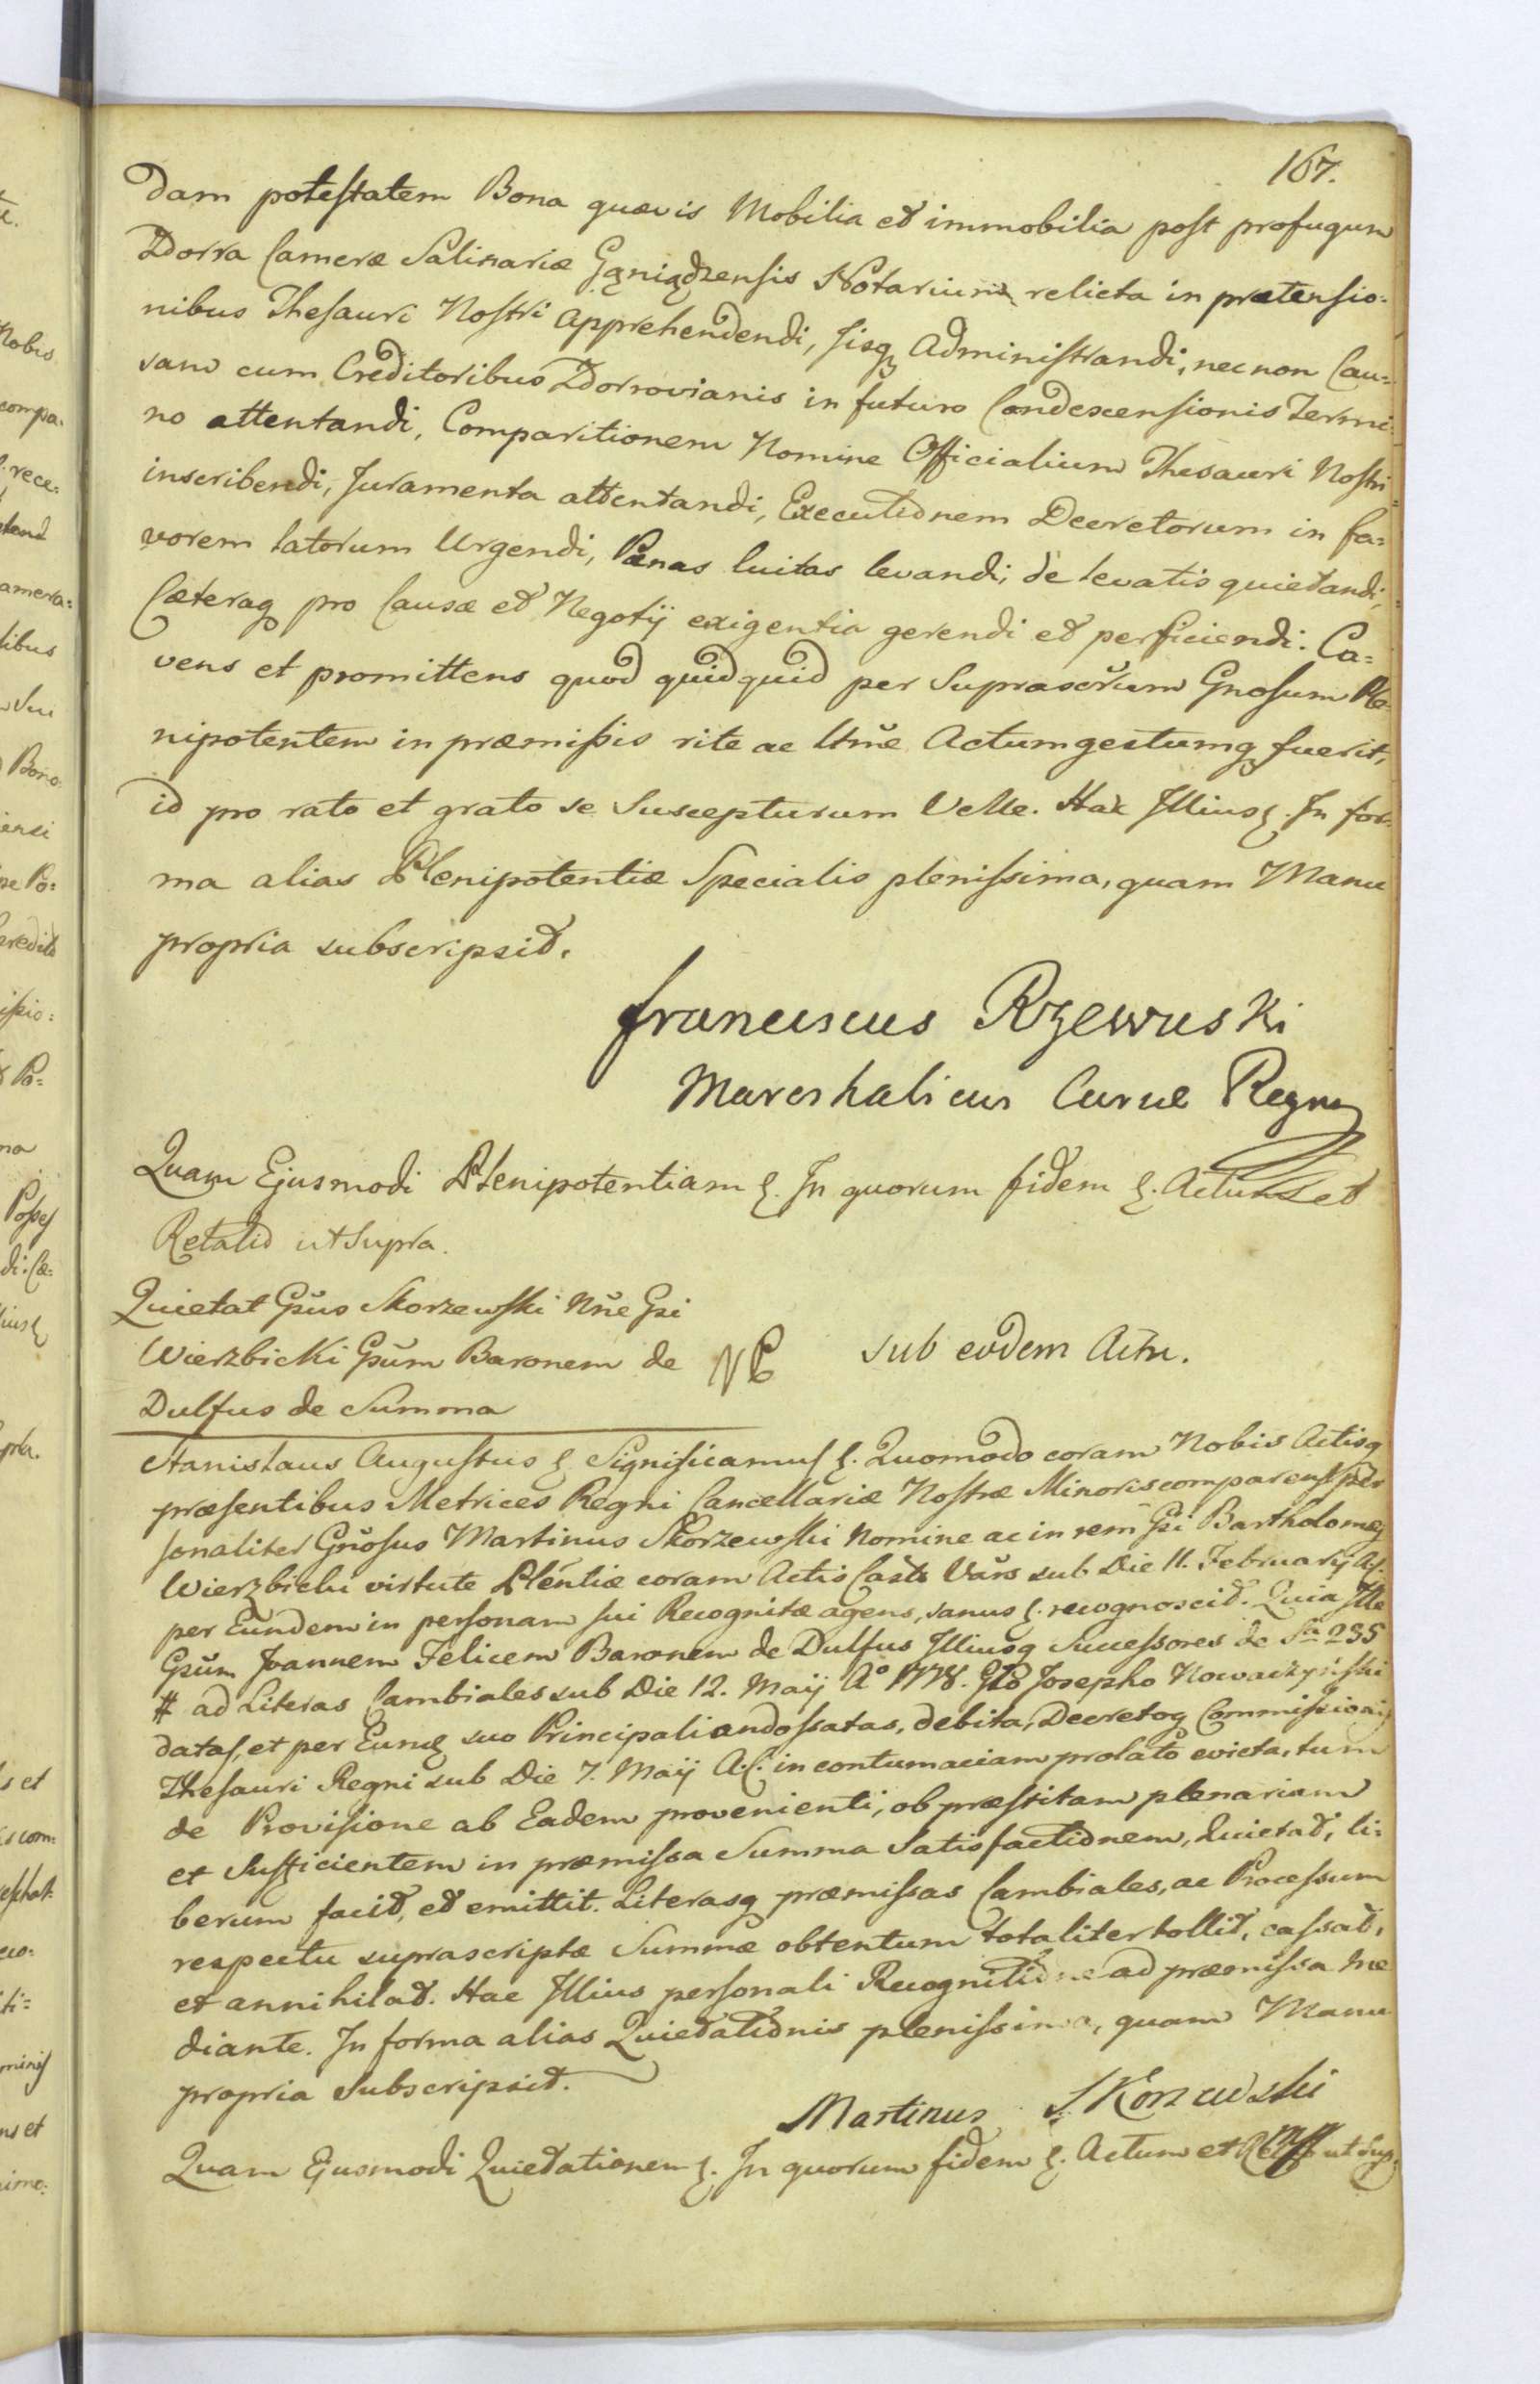 167.
dam potestatem Bona quævis Mobilia et immobilia post profugum
Dorra Cameræ Salinariæ Gąniądzensis Notarium relicta in prætensio-
nibus Thesauri Nostri Apprehendendi, Jisq Administrandi, necnon Cau-
sam cum Creditoribus Dorrovianis in futuro Condescensionis Termi-
no attentandi, Comparitionem Nomine Officialium Thesauri Nostri
inscribendi, Juramenta attentandi, Executionem Decretorum in fa-
vorem latorum Urgendi, Pænas luitas levandi, de levatis quietandi,
Cæteraq pro Causæ et Negotij exigentia gerendi et perficiendi: Ca-
vens et promittens quod quidquid per Suprascrum Gnosum Ple-
nipotentem in præmissis rite ac ltme Actum gestumq fuerit,
id pro rato et grato se Suscepturum Velle. Hac Illius. In for-
ma alias Plenipotentiæ Specialis plenissima, quam Manu
propria subscripsit.
Franciscus Rzewuski
Mareshalicus Curiæ Regni
Quam Ejusmodi Plenipotentiam. In quorum fidem. Actum et
Relatio ut Supra.
Quietat Gsus Skorzewski Nne Gsi
Wierzbicki Gsum Baronem de
Dulfus de Summa
sub eodem Actu.
Stanislaus Augustus Significamus. Quomodo coram Nobis Actisq
præsentibus Metrices Regni Cancellariæ Nostræ Minoris comparens per
sonaliter Gnosus Martinus Skorzewski Nomine ac in rem Gsi Bartholomæj
Wierzbicki virtute Plentiæ coram Actis Casts Vars sub Die 11. Februarij
per Eundem in personam sui Recognitæ agens, sanus. recognoscit. Quia Ille
Gsum Joannem Felicem Baronem de Dulfus Illiusq Successores de Sa 235
# ad Literas Cambiales sub Die 12. Maij Ao 1778. Gso Josepho Nowaczyński
datas, et per Eunq suo Principali andossatas, debita, Decretoq Commissionis
Thesauri Regni sub Die 7. Maij A.C. in contumaciam prolato evicta, tum
de Provisione ab Eadem provenienti, ob præstitam plenariam
et Sufficientem in præmissa Summa Satisfactionem, Quietat, li-
berum facit, et emittit. Literasq præmissas Cambiales, ac Processum
respectu suprascriptæ Summæ obtentum totaliter tollit, cassat,
et annihilat. Hac Illius personali Recognitione ad præmissa me
diante. In forma alias Quietationis plenissima, quam Manu
propria Subscripsit.
Martinus Skorzewski
Quam Ejusmodi Quietationem. In quorum fidem. Actum et ut Sup.